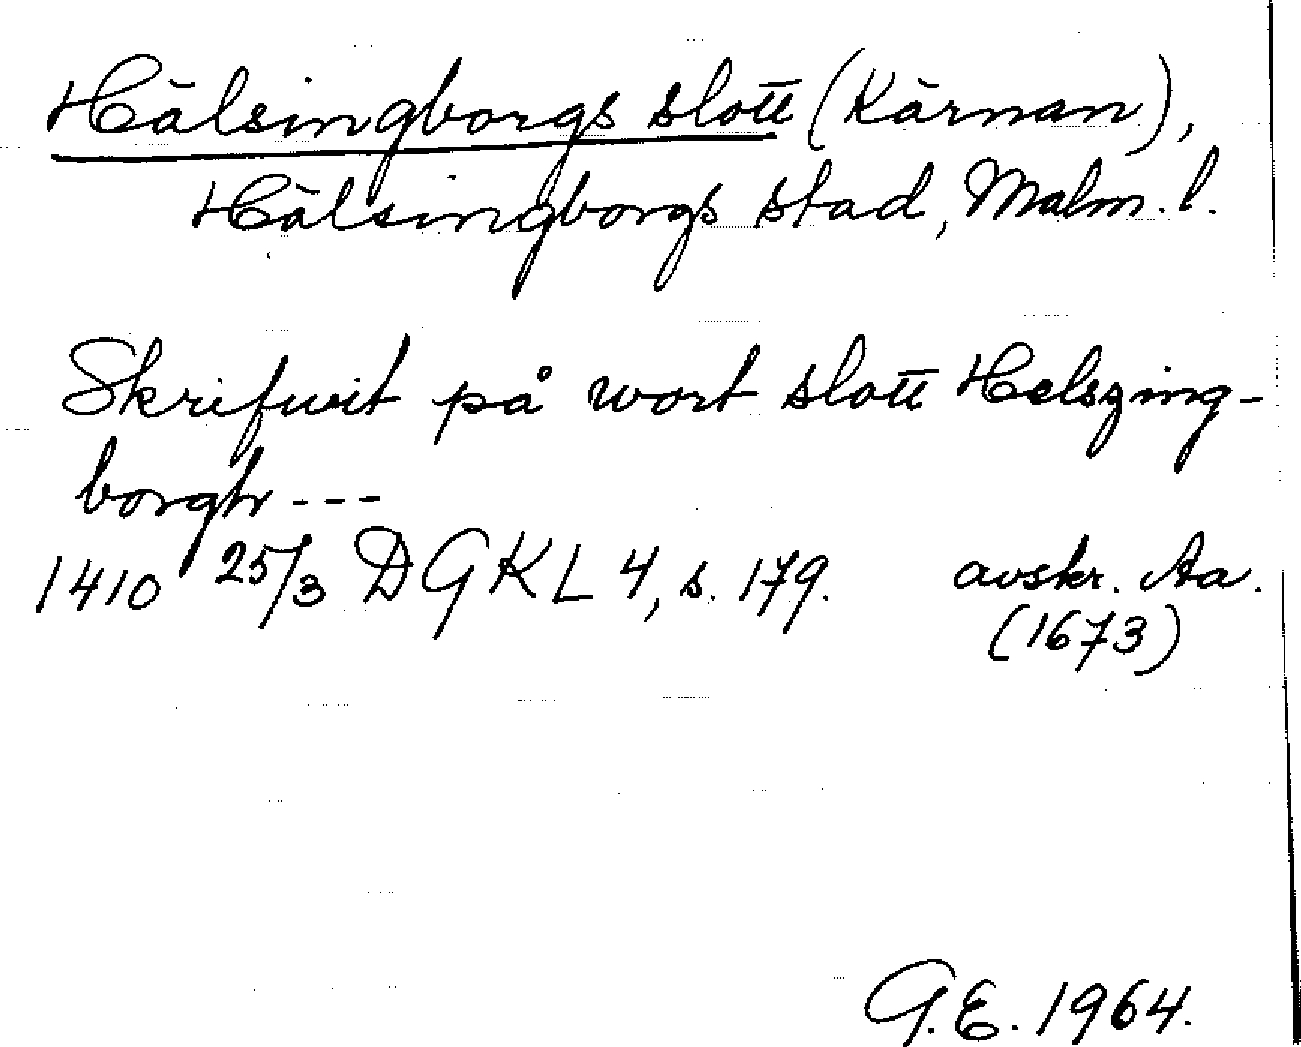 Hälsingborgs slott (Kärnan),
Hälsingborgs stad, Malm. l.
Skrifuit på wort slott Helszing-
borgh ---
1410 25/3 DGKL 4, s. 179. avskr. Aa.
(1673)
G.E. 1964.